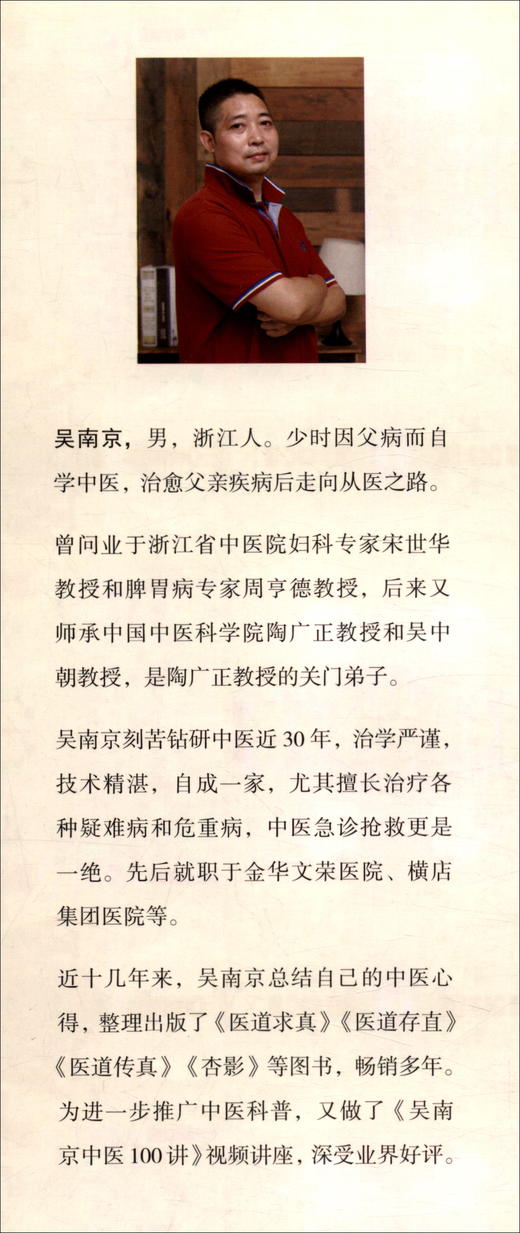 吴南京，男，浙江人。少时因父病而自
学中医，治愈父亲疾病后走向从医之路。
曾问业于浙江省中医院妇科专家宋世华
教授和脾胃病专家周亨德教授，后来又
师承中国中医科学院陶广正教授和吴中
朝教授，是陶广正教授的关门弟子。
吴南京刻苦钻研中医近30年，治学严谨，
技术精湛，自成一家，尤其擅长治疗各
种疑难病和危重病，中医急诊抢救更是
一绝。先后就职于金华文荣医院、横店
集团医院等。
近十几年来，吴南京总结自己的中医心
得，整理出版了《医道求真》《医道存直》
《医道传真》《杏影》等图书，畅销多年。
为进一步推广中医科普，又做了《吴南
京中医100讲》视频讲座，深受业界好评。